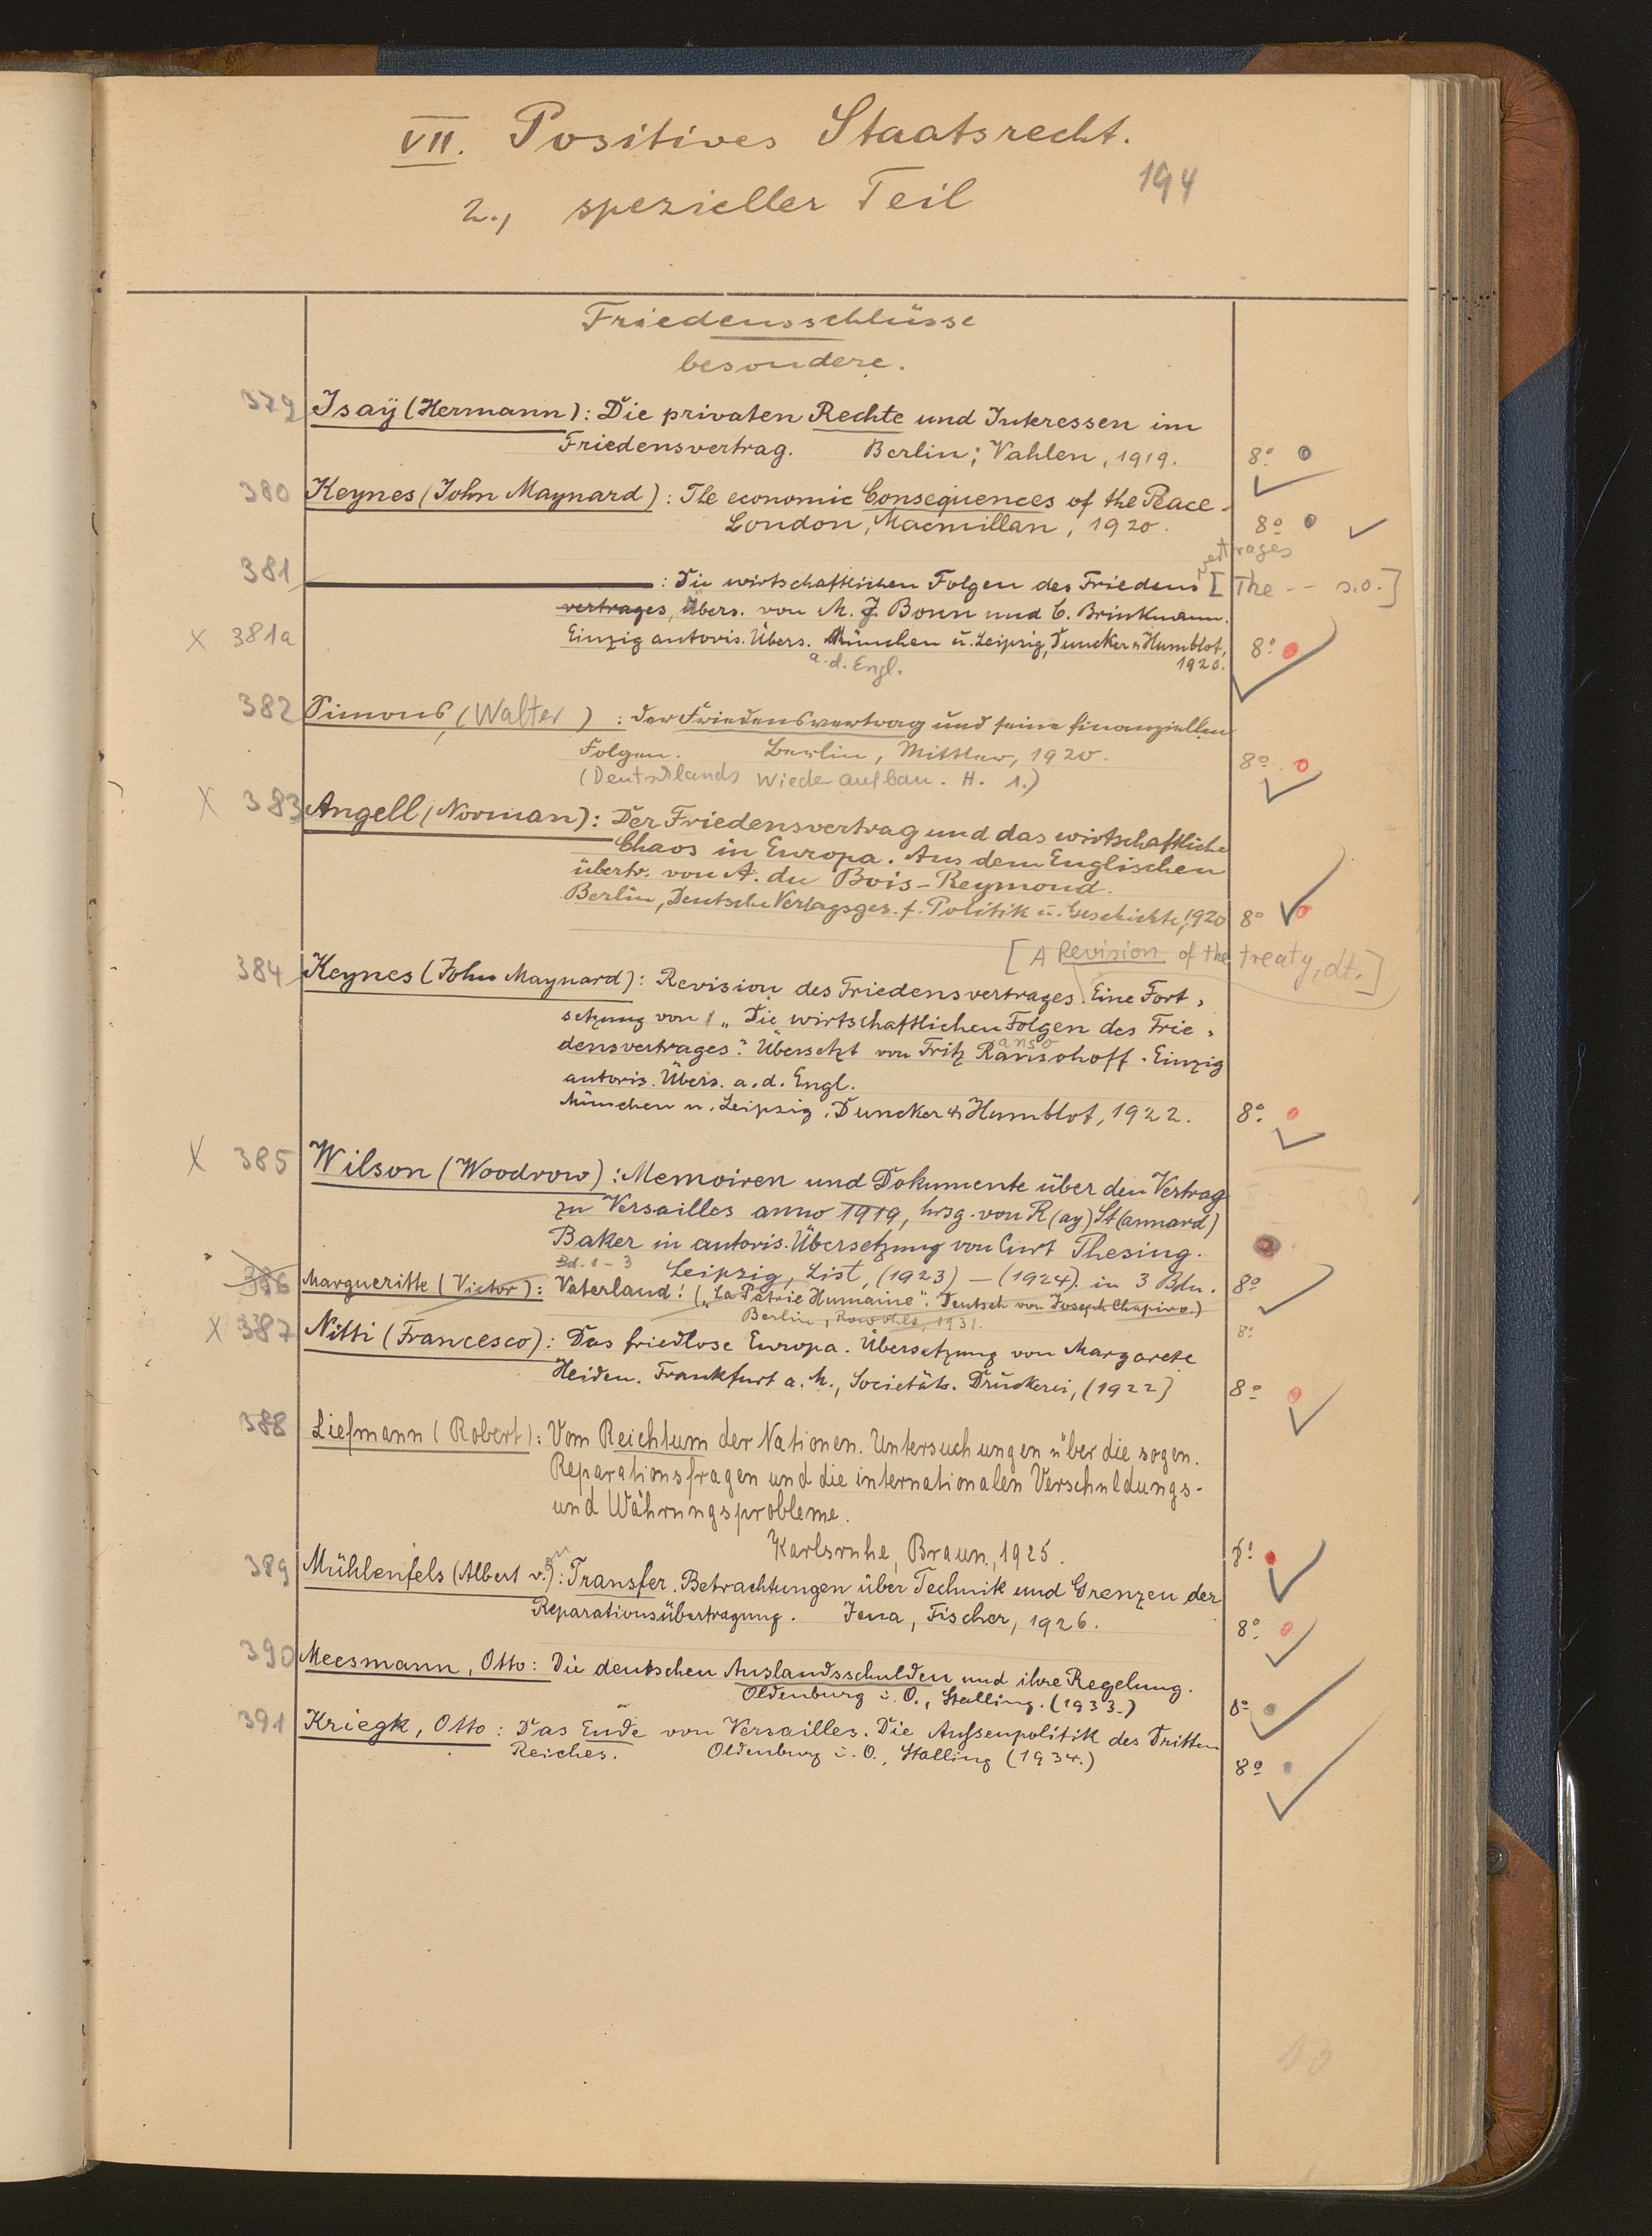 VII. Positives Staatsrecht.
194
2., spezieller Teil
Friedensschlüsse
besondere.
379 Isaÿ (Hermann): Die privaten Rechte und Interessen im
Friedensvertrag. Berlin; Vahlen, 1919. 8°
380 Keynes (John Maynard): The economic Consequences of the Peace.
London, Macmillan, 1920. 8°
vertrages
381 : Die wirtschaftlichen Folgen des Friedens [The -- s.o.]
vertrages, Übers. von M. J. Bonn und C. Brinkmann.
X 381a Einzig autoris. Übers. München u. Leipzig, Duncker & Humblot, 8°
a.d. Engl. 1920.
382 Simons, (Walter) : Der Friedensvertrag und seine finanziellen
Folgen. Berlin, Mittler, 1920. 8°
(Deutschlands Wiederaufbau. H. 1.)
X 383 Angell (Norman): Der Friedensvertrag und das wirtschaftliche
Chaos in Europa. Aus dem Englischen
übertr. von A. du Bois-Reymond.
Berlin, Deutsche Verlagsges. f. Politik u. Geschichte, 1920 8°
[A Revision of the treaty, dt.]
384 Keynes (John Maynard): Revision des Friedensvertrages. Eine Fort-
setzung von "Die wirtschaftlichen Folgen des Frie-
anso
densvertrages". Übersetzt von Fritz Ransohoff. Einzig
autoris. Übers. a. d. Engl.
München u. Leipzig, Duncker & Humblot, 1922. 8°
X 385 Wilson (Woodrow): Memoiren und Dokumente über den Vertrag
zu Versailles anno 1919, hrsg. von R(ay) St(annard)
Baker in autoris. Übersetzung von Curt Thesing.
Bd. 1-3 Leipzig, List, (1923) - (1924). in 3 Bdn. 8°
386 Margueritte (Victor): Vaterland! ("La Patrie Humaine". Deutsch von Joseph Chapiro.)
Berlin, Rowohlt, 1931. 8°
X 387 Nitti (Francesco): Das friedlose Europa. Übersetzung von Margarete
Heiden. Frankfurt a. M., Societäts-Druckerei, (1922) 8°
388 Liefmann (Robert): Vom Reichtum der Nationen. Untersuchungen über die sogen.
Reparationsfragen und die internationalen Verschuldungs-
und Währungsprobleme.
Karlsruhe, Braun, 1925. 8°
389 Mühlenfels (Albert v.): Transfer. Betrachtungen über Technik und Grenzen der
Reparationsübertragung. Jena, Fischer, 1926. 8°
390 Meesmann, Otto: Die deutschen Auslandsschulden und ihre Regelung.
Oldenburg i. O., Stalling. (1933.) 8°
391 Kriegk, Otto: Das Ende von Versailles. Die Aussenpolitik des Dritten
Reiches. Oldenburg i. O., Stalling (1934.) 8°